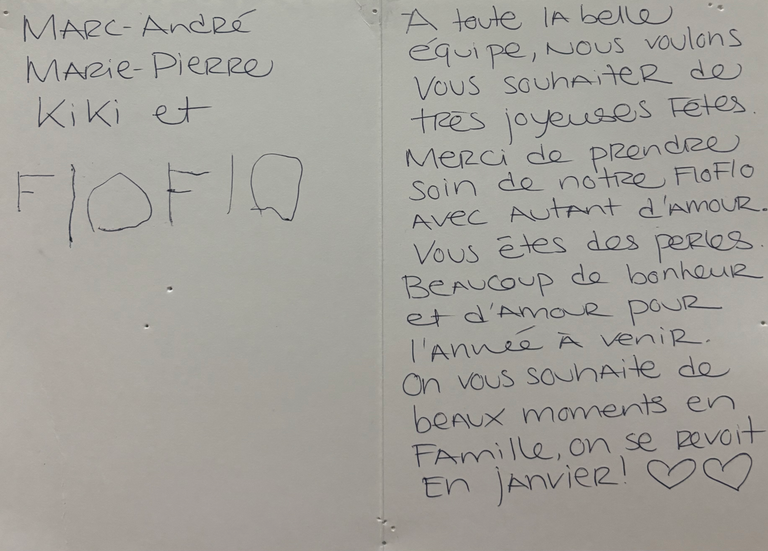 Marc-André
Marie-Pierre
Kiki et
FloFlo
À toute la belle
équipe, nous voulons
vous souhaiter de
très joyeuses Fêtes.
Merci de prendre
soin de notre FloFlo
avec autant d'amour.
Vous êtes des perles.
Beaucoup de bonheur
et d'amour pour
l'année à venir.
On vous souhaite de
beaux moments en
famille, on se revoit
en janvier! ♡♡